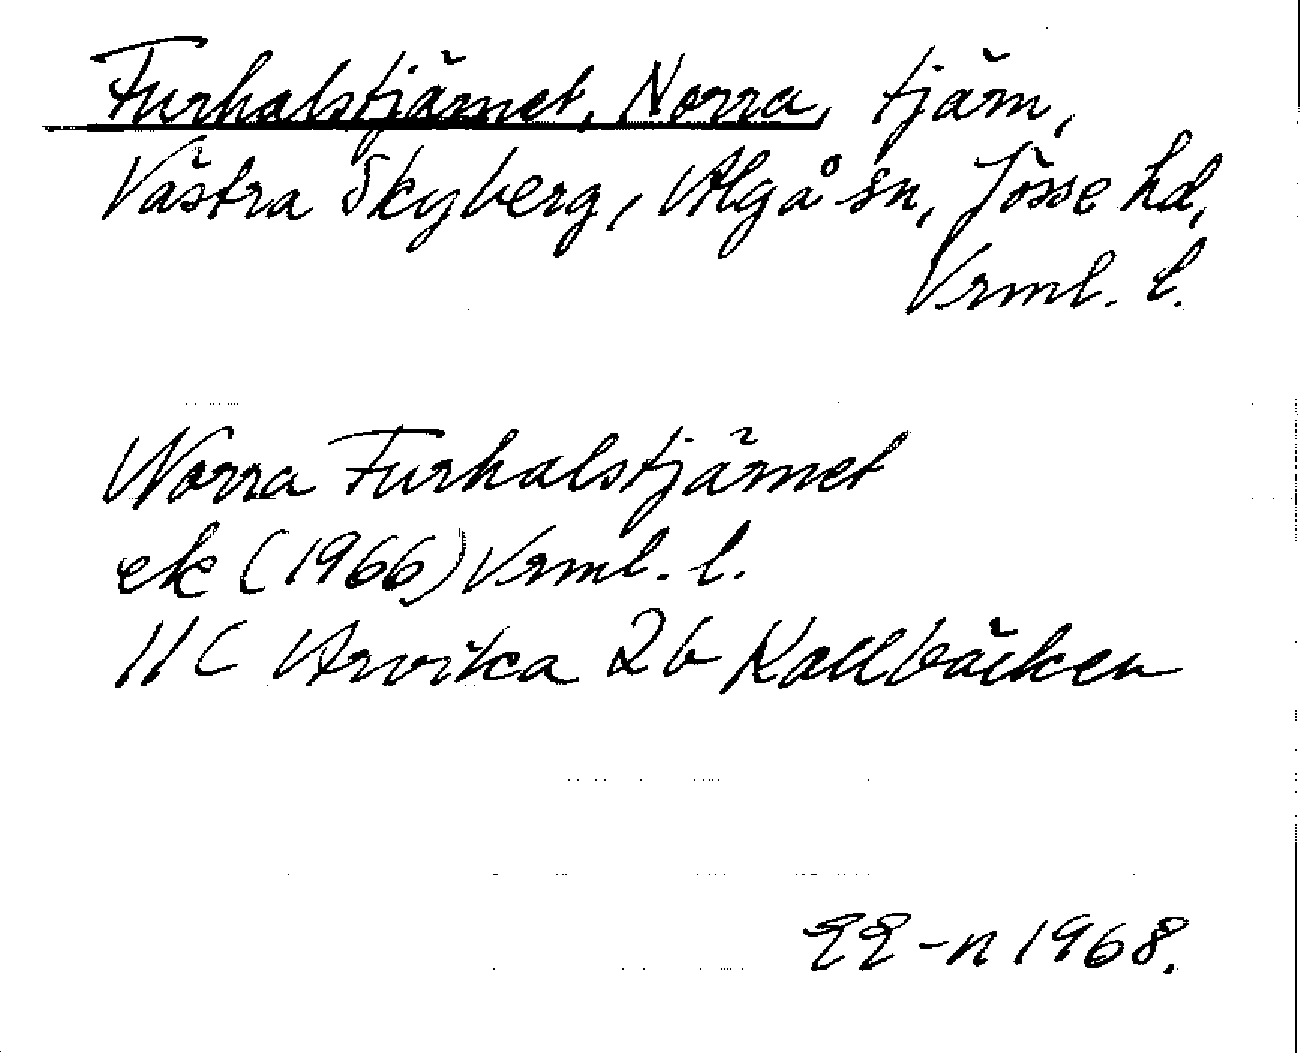 Furhalstjärnet, Norra, tjärn,
Västra Skyberg, Älgå sn, Jösse hd,
Vrml. l.
Norra Furhalstjärnet
ek (1966) Vrml. l.
11C Arvika 2b Kallbäcken
EE-n 1968.